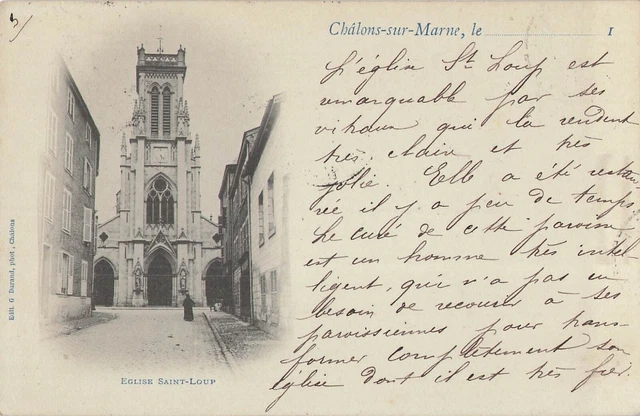 Châlons-sur-Marne, le 1
L'église St Loup est
remarquable par ses
vitraux qui la rendent
très claire et très
jolie. Elle a été restau
rée il y a peu de temps
Le curé de cette paroisse
est un homme très intel
ligent, qui n'a pas eu
besoin de recourir à ses
paroissiennes pour trans-
former complètement son
église dont il est très fier.
EGLISE SAINT-LOUP
Edit. G Durand, phot., Châlons